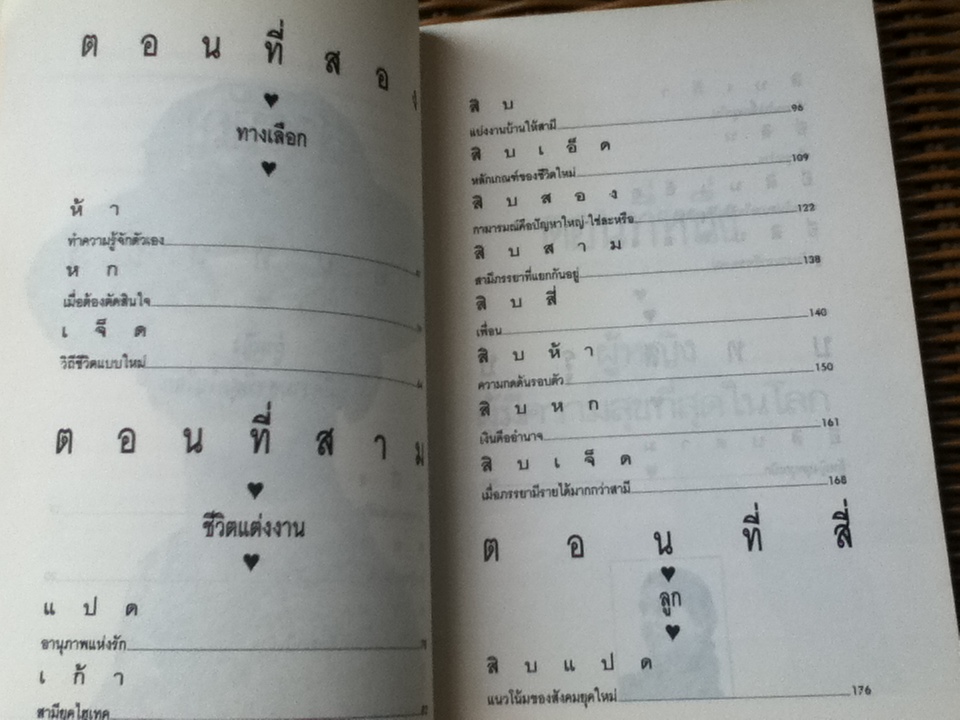 ตอนที่สอง
ทางเลือก
ห้า
ทำความรู้จักตัวเอง
หก
เมื่อต้องตัดสินใจ
เจ็ด
วิถีชีวิตแบบใหม่
ตอนที่สาม
ชีวิตแต่งงาน
แปด
อานุภาพแห่งรัก
เก้า
สามียุคไฮเทค
สิบ
แบ่งงานบ้านให้สามี 96
สิบเอ็ด
หลักเกณฑ์ของชีวิตใหม่ 109
สิบสอง
กามารมณ์คือปัญหาใหญ่-ใช่ละหรือ 122
สิบสาม
สามีภรรยาที่แยกกันอยู่ 138
สิบสี่
เพื่อน 140
สิบห้า
ความกดดันรอบตัว 150
สิบหก
เงินคืออำนาจ 161
สิบเจ็ด
เมื่อภรรยามีรายได้มากกว่าสามี 168
ตอนที่สี่
ลูก
สิบแปด
แนวโน้มของสังคมยุคใหม่ 176